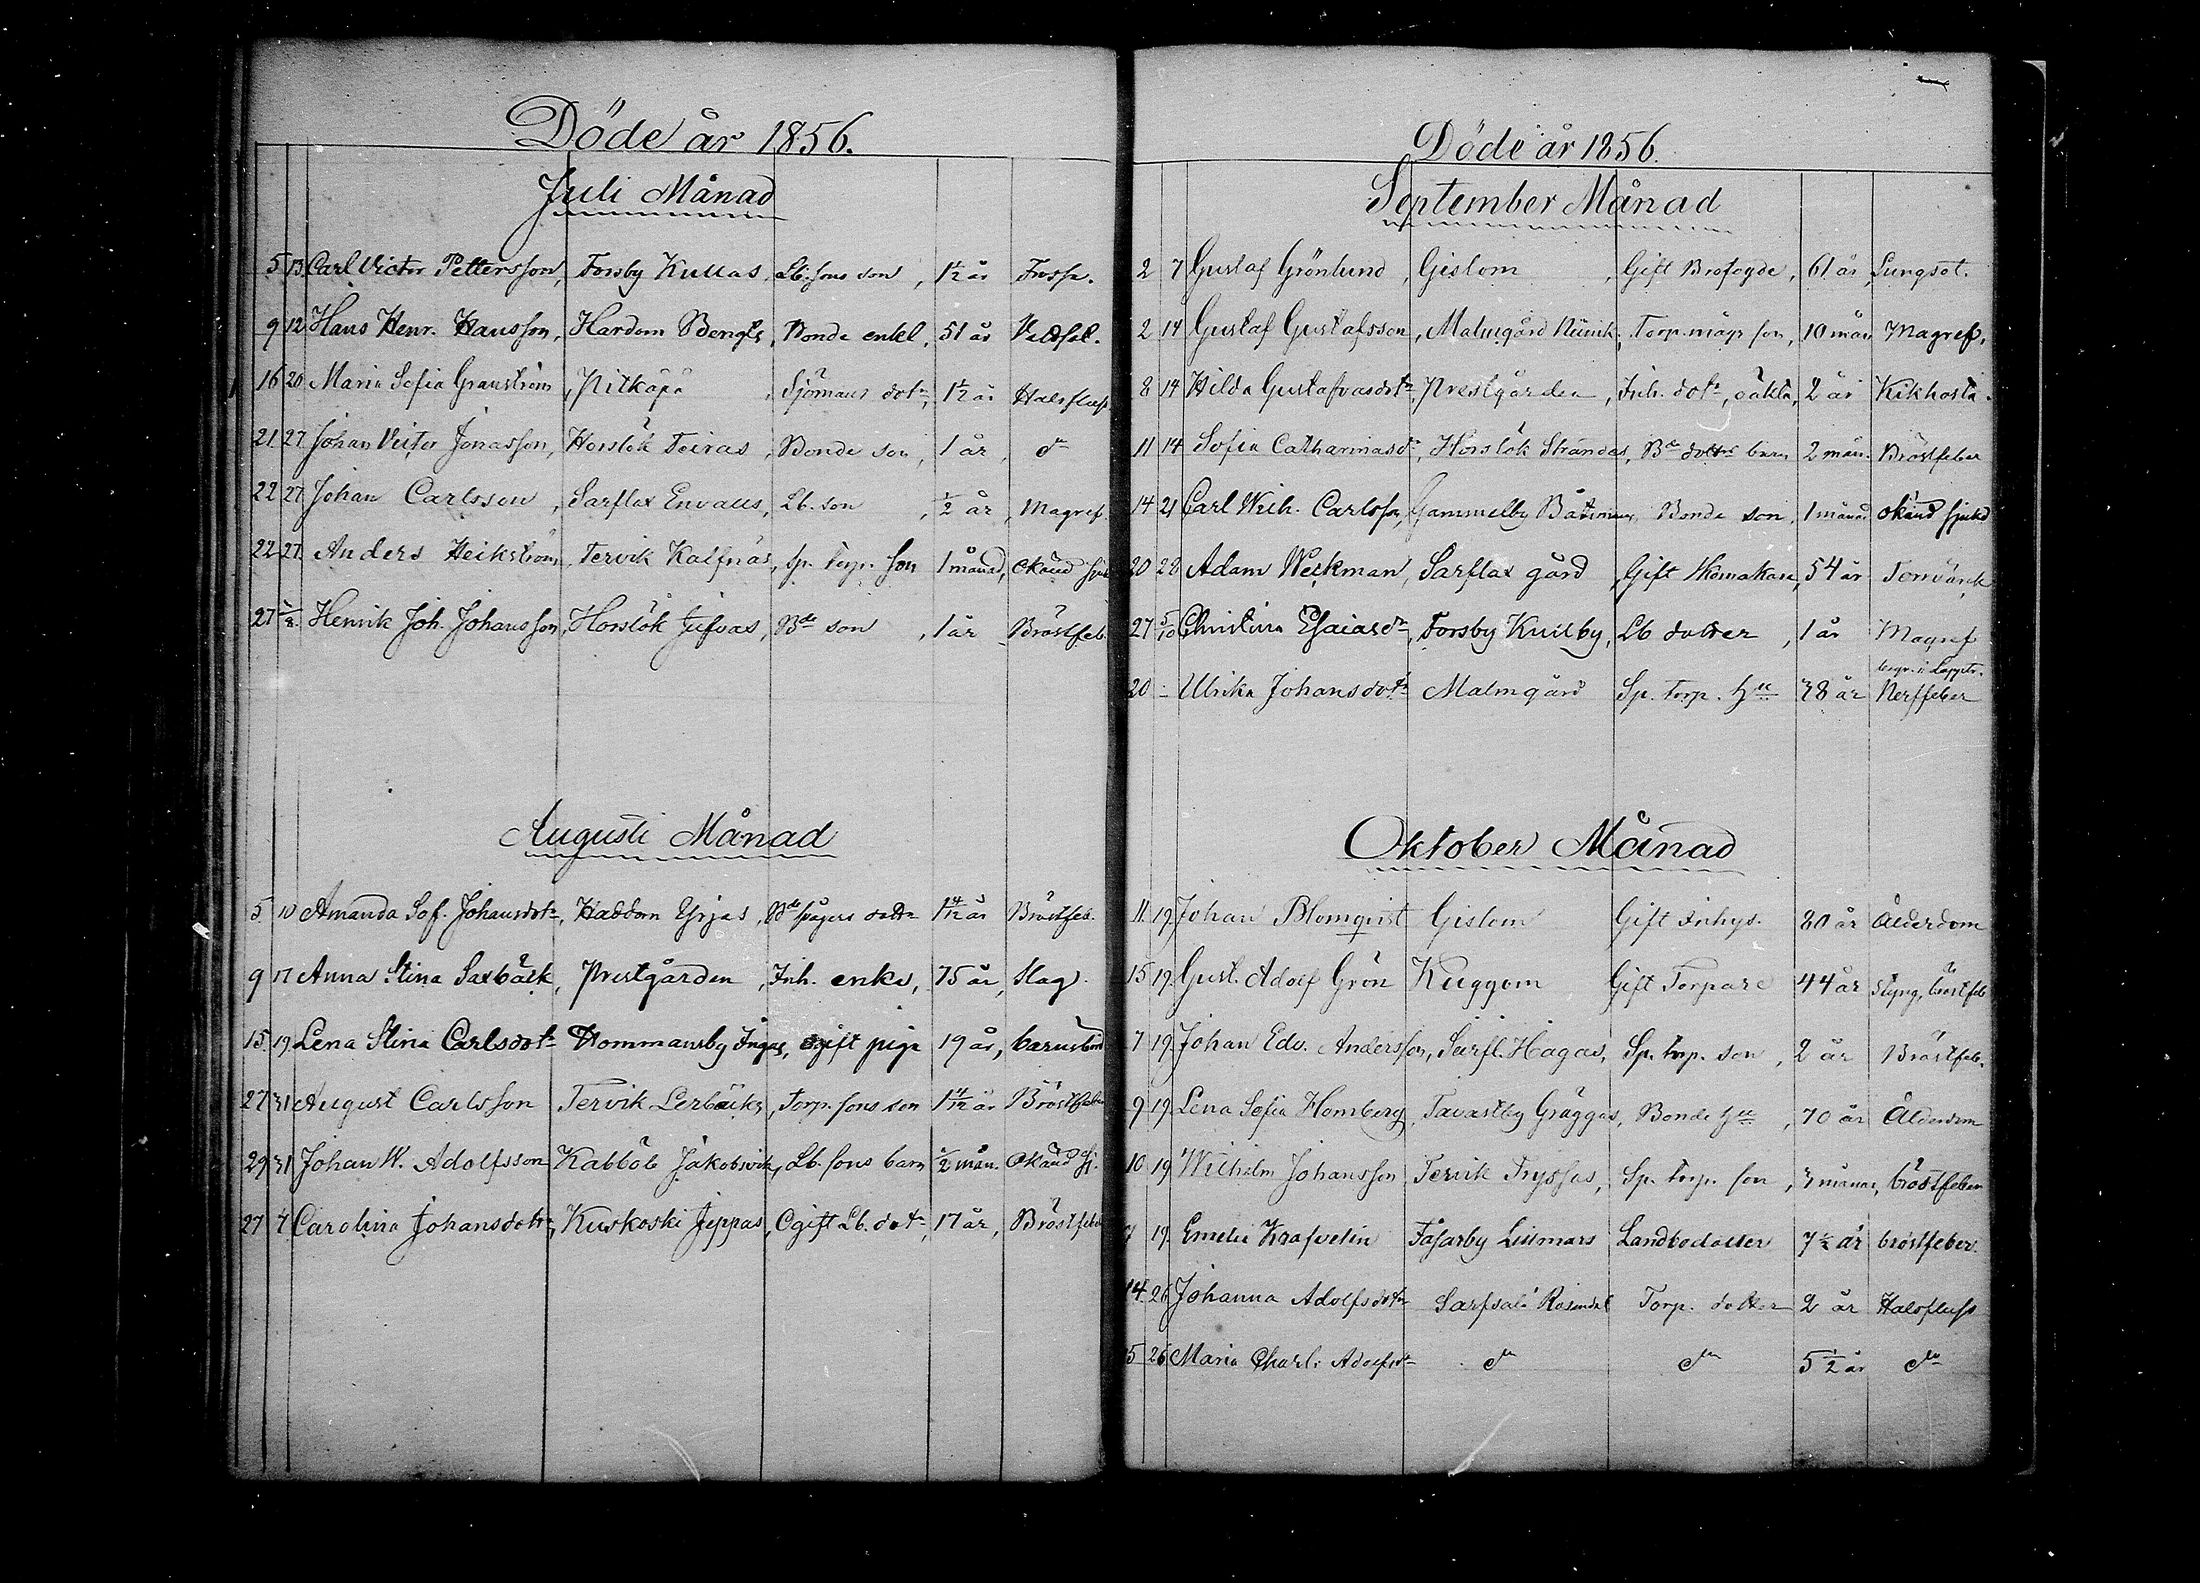 Döde år 1856.
Juli Månad
5 13 Carl Victor Pettersson, Forsby Kullas, Lb. sons son, 1½ år Frossa.
9 12 Hans Henr. Hansson, Hardom Bengts, Bonde enkl., 51 år
16 20 Maria Sofia Granström, Pitkäpä, Sjömans dotr, 1½ år Halsfluss
21 27 Johan Victor Jonasson, Horslök Teiras, Bonde son, 1 år, do
22 27 Johan Carlsson, Sarflax Envalls, Lb. son, ½ år, Magref.
22 27 Anders Heikström, Tervik Kalfnäs, Sp. torp. son 1 månad, Okänd sjuk
27 Henrik Joh. Johansson, Horslök Jufvas, Bde son, 1 år Bröstfeb.
Augusti Månad
5 10 Amanda Sof. Johansdotr, Haddom Yrjas, Bde svågers dotr 1 4/12 år Bröstfeb.
9 17 Anna Stina Saxbäck, Prestgården, Inh. enka, 75 år, Slag.
15 19 Lena Stina Carlsdotr Hommansby Ingas, ogift piga 19 år, barnsbörd
27 31 August Carlsson Tervik Lerbäcks, Torp. sons son 1 4/12 år Bröstfeber
29 31 Johan W. Adolfsson Kabböle Jakobsvik, Lb. sons barn ½ mån. Okänd sj.
27 4 Carolina Johansdotr, Kuskoski Jeppas, Ogift Lb. dotr, 17 år, Bröstfeber
Döde år 1856.
September Månad
2 7 Gustaf Grönlund, Gislom, Gift Brofogde, 61 år, Lungsot.
2 14 Gustaf Gustafsson, Malmgård, Torp. mågs son, 10 mån Magref.
8 14 Hilda Gustafvasdotr, Prestgården, Inh. dotr, oäkta, 2 år Kikhosta.
11 14 Sofia Catharinasdr, Horslök Strandas, Bde dotters barn 2 mån. Bröstfeber
14 21 Carl Wilh. Carlsson, Gammelby Båtsmans, Bonde son, 1 månad okänd sjukd
20 28 Adam Weckman, Sarflax gård, Gift Skomakare, 54 år Torrvärk
27 5/10 Christina Esaiasdr, Forsby Kuilby, Lb dotter, 1 år Magref
begr. i Lapptr.
20 - Ulrika Johansdotr Malmgård Sp. torp. hu 38 år Nerffeber
Oktober Månad
11 19 Johan Blomqvist Gislom Gift Inhys. 80 år Ålderdom
15 19 Gust. Adolf Grön Kuggom Gift Torpare 44 år Styng, bröstfeb
7 19 Johan Edv. Andersson, Sarfl. Hagas, Sp. torp. son, 2 år Bröstfeb.
9 19 Lena Sofia Homberg, Tavastby Gräggas, Bonde hu, 70 år Ålderdom
10 19 Wilhelm Johansson Tervik Tryssas, Sp. torp. son, 3 månar, bröstfeber
7 19 Emelie Krafvelin Fasarby Lillmars Landbodotter 7½ år bröstfeber.
14 26 Johanna Adolfsdotr Sarfsalö Rosendal Torp. dotter 2 år Halsfluss
5 26 Maria Charl: Adolfsdr do do 5½ år do